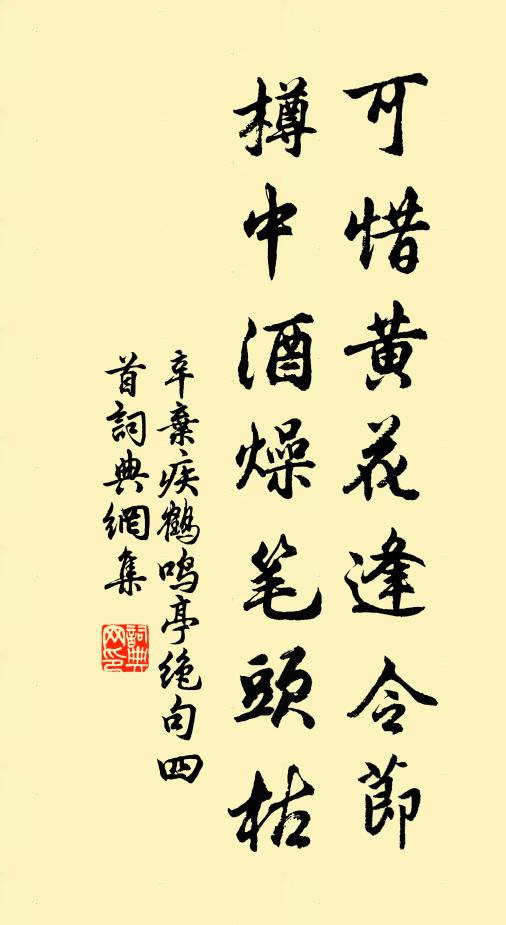 可惜黄花逢令節
樽中酒燥笔頭枯
辛棄疾鶴鸣亭绝句四
首詞典網集
詞典网印